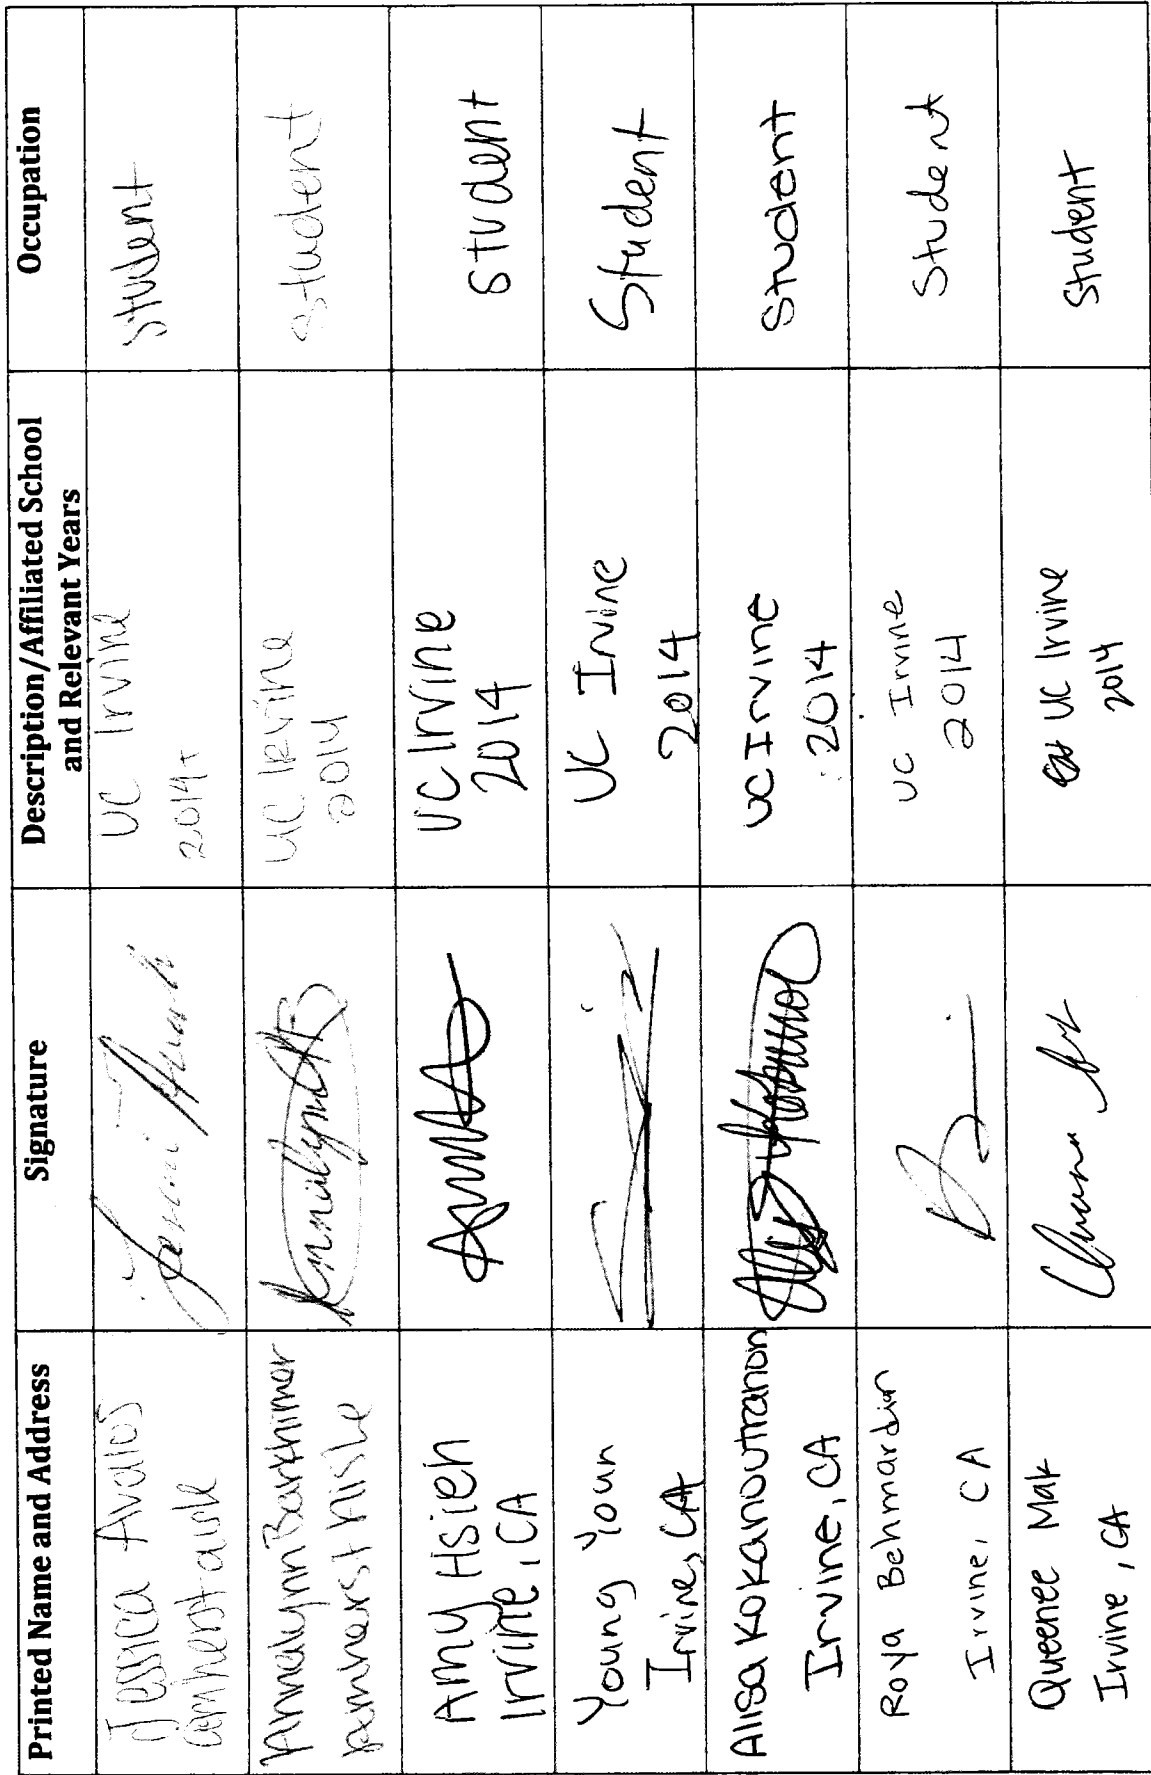 Printed Name and Address
Signature
Description/Affiliated School
and Relevant Years
Occupation
Jessica Avalos
amherst aisle
UC Irvine
2014
student
Annalynn Barkhimer
amherst Aisle
UC Irvine
2014
student
Amy Hsieh
Irvine, CA
UC Irvine
2014
student
Young Youn
Irvine, CA
UC Irvine
2014
Student
Alisa Kokanoutranon
Irvine, CA
UC Irvine
2014
Student
Roya Behmardian
Irvine, CA
UC Irvine
2014
Student
Queenee Mak
Irvine, CA
UC Irvine
2014
Student